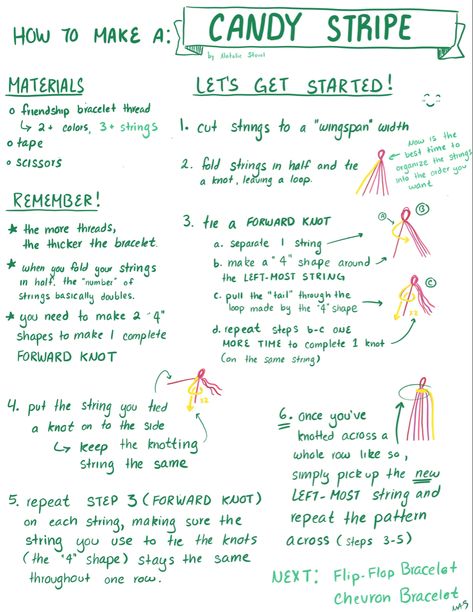 HOW TO MAKE A:
CANDY STRIPE
by Natalie
MATERIALS
friendship bracelet thread
↳ 2+ colors, 3+ strings
tape
scissors
REMEMBER!
★ the more threads,
the thicker the bracelet.
★ when you fold your strings
in half, the "number" of
strings basically doubles.
★ you need to make 2 "4"
shapes to make 1 complete
FORWARD KNOT
LET'S GET STARTED!
1. cut strings to a "wingspan" width
2. fold strings in half and tie
a knot, leaving a loop.
Now is the
best time to
organize the strings
into the order you
want
3. tie a FORWARD KNOT
a. separate 1 string
b. make a "4" shape around
the LEFT-MOST STRING
c. pull the "tail" through the
loop made by the "4" shape
d. repeat steps b-c ONE
MORE TIME to complete 1 knot
(on the same string)
B
C
x2
4. put the string you tied
a knot on to the side
↳ keep the knotting
string the same
x2
5. repeat STEP 3 (FORWARD KNOT)
on each string, making sure the
string you use to tie the knots
(the "4" shape) stays the same
throughout one row.
6. once you've
knotted across a
whole row like so,
simply pick up the new
LEFT-MOST string and
repeat the pattern
across (steps 3-5)
NEXT: Flip-Flop Bracelet
Chevron Bracelet